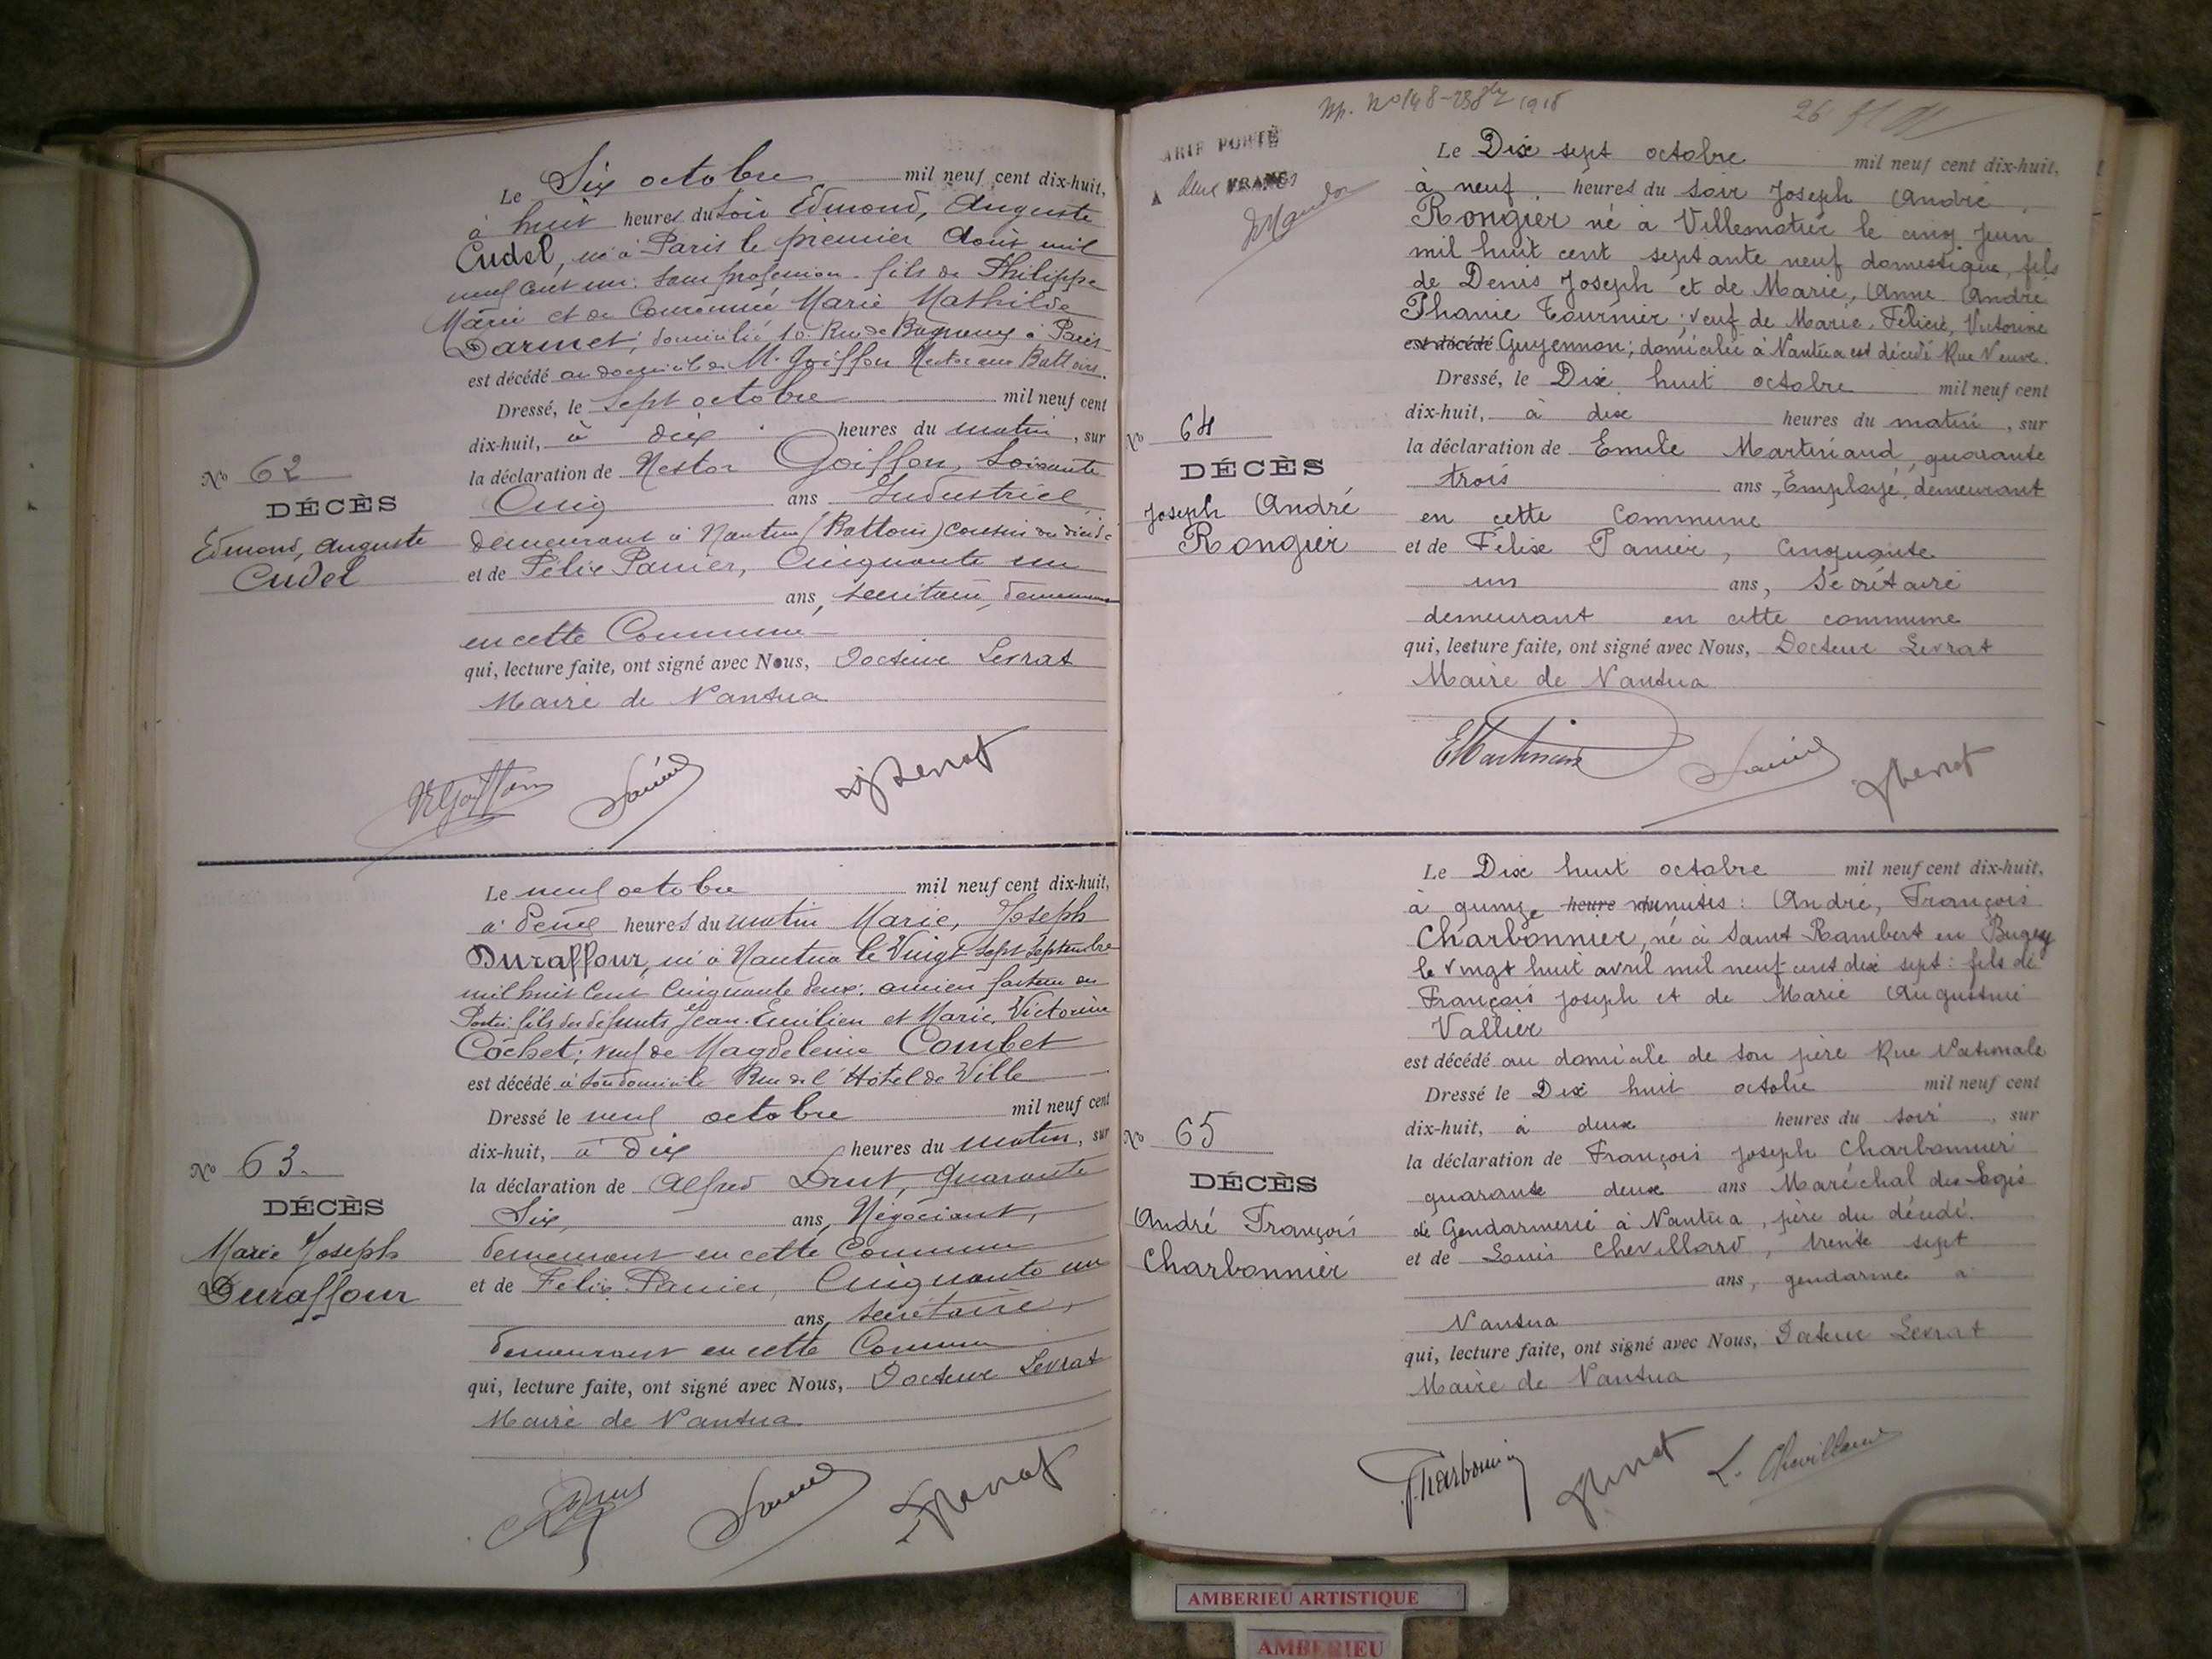 Le Six octobre mil neuf cent dix-huit,
à huit heures du Soir Edmond, Auguste
Cudel, né à Paris le premier Août mil
neuf cent un: sans profession. fils de Philippe
Marie et de Marie Mathilde
Darmet; domicilié 10 Rue de Bagneux à Paris
est décédé au domicile de M. Goiffon Nestor aux Battoirs.
Dressé, le Sept octobre mil neuf cent
dix-huit, à dix heures du matin, sur
la déclaration de Nestor Goiffon, Soixante
Cinq ans Industriel
demeurant à Nantua (Battoirs) cousin du décédé
et de Félix Panier, Cinquante un
ans, secrétaire, demeurant
en cette Commune
qui, lecture faite, ont signé avec Nous, Docteur Levrat
Maire de Nantua
No 62
DÉCÈS
Edmond, Auguste
Cudel
Le neuf octobre mil neuf cent dix-huit,
à heures du matin Marie, Joseph
Duraffour, né à Nantua le Vingt Sept Septembre
mil huit Cent Cinquante deux: ancien facteur des
Postes fils des défunts Jean-Emilien et Marie, Victorine
Cochet; veuf de Magdeleine Combet
est décédé à son domicile Rue de l'Hôtel de Ville
Dressé le neuf octobre mil neuf cent
dix-huit, à Dix heures du matin, sur
la déclaration de Alfred Drut, Quarante
Six ans, Négociant,
demeurant en cette Commune
et de Félix Panier, Cinquante un
ans, secrétaire,
demeurant en cette Commune
qui, lecture faite, ont signé avec Nous, Docteur Levrat
Maire de Nantua
No 63.
DÉCÈS
Marie Joseph
Duraffour
No 148 1918
26
ARIF PORTÉ
A deux FRANCS
Le Dix sept octobre mil neuf cent dix-huit,
à neuf heures du soir Joseph André
Rongier né à Villemotier le cinq Juin
mil huit cent septante neuf domestique, fils
de Denis Joseph et de Marie, Anne André
Phanie Tournier; veuf de Marie, Félicie, Victorine
est décédé Guyennon; domicilié à Nantua est décédé Rue Neuve.
Dressé, le Dix huit octobre mil neuf cent
dix-huit, à dix heures du matin, sur
la déclaration de Emile Martinand, quarante
trois ans, Employé, demeurant
en cette Commune
et de Félix Panier, Cinquante
un ans, Secrétaire
demeurant en cette commune
qui, lecture faite, ont signé avec Nous, Docteur Levrat
Maire de Nantua
No 64
DÉCÈS
Joseph André
Rongier
Le Dix huit octobre mil neuf cent dix-huit,
à quinze heure minutes: André, François
Charbonnier, né à Saint Rambert en Bugey
le vingt huit avril mil neuf cent dix sept: fils de
François Joseph et de Marie Augustine
Vallier
est décédé au domicile de son père Rue Nationale
Dressé le Dix huit octobre mil neuf cent
dix-huit, à deux heures du soir, sur
la déclaration de François Joseph Charbonnier
quarante deux ans Maréchal des Logis
de Gendarmerie à Nantua, père du décédé.
et de Louis Chevillard, trente sept
ans, gendarme à
Nantua
qui, lecture faite, ont signé avec Nous, Docteur Levrat
Maire de Nantua
L. Chevillard
No 65
DÉCÈS
André François
Charbonnier
AMBERIEU ARTISTIQUE
AMBERIEU